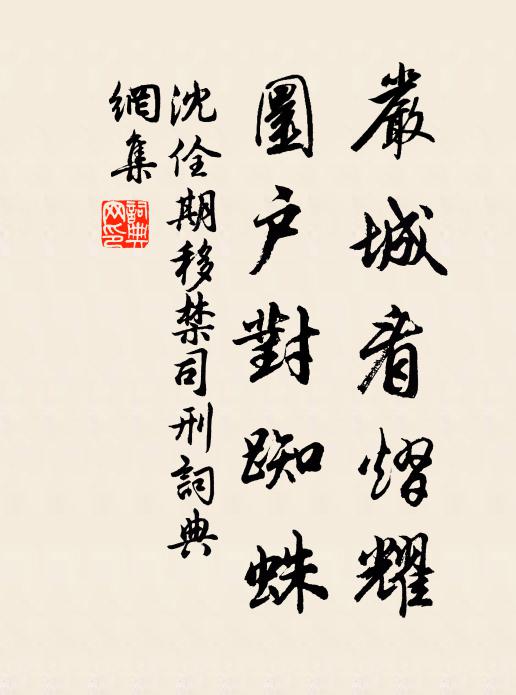 嚴城看熠耀
圜户對踟蛛
沈佺期移禁司刑詞典
網集
詞典
网印